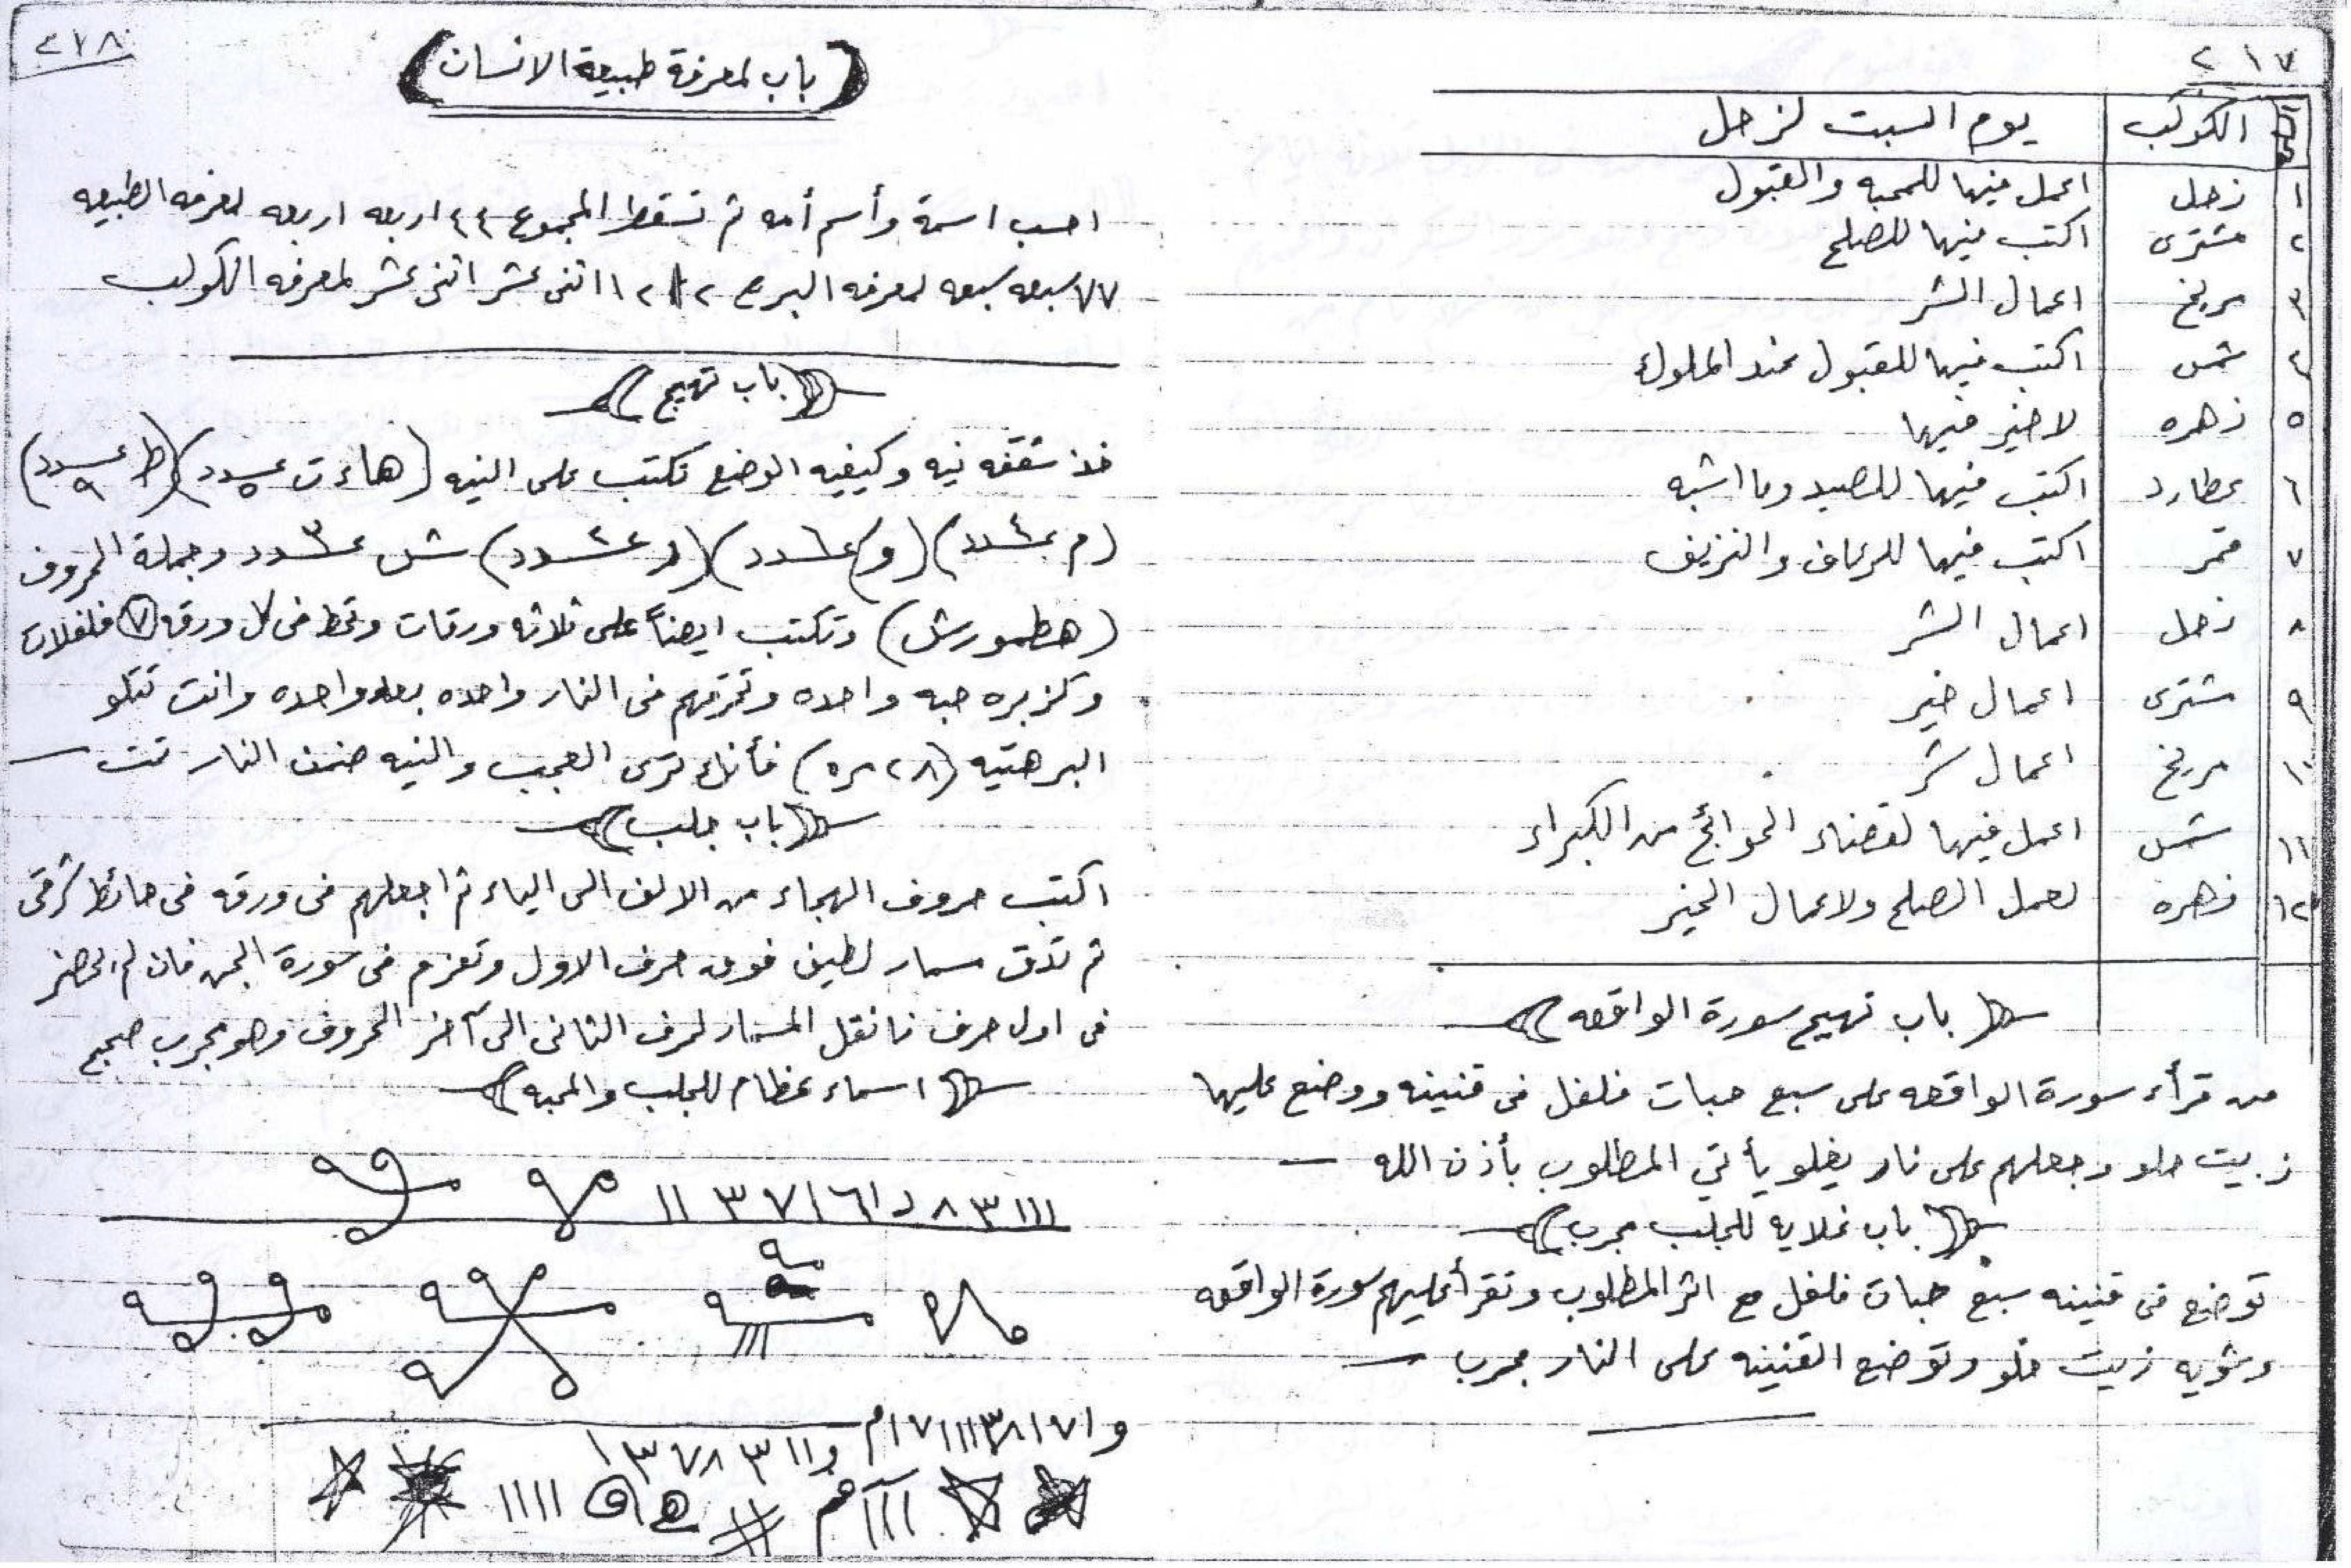 ٢١٧
الكوكب يوم السبت لزحل
١ زحل اعمل فيها للمحبه والقبول
٢ مشترى اكتب فيها للصلح
٣ مريخ اعمال الشر
٤ شمس اكتب فيها للقبول عند الملوك
٥ زهره لا خير فيها
٦ عطارد اكتب فيها للصيد وما اشبه
٧ قمر اكتب فيها للرعاف والنزيف
٨ زحل اعمال الشر
٩ مشترى اعمال خير
١٠ مريخ اعمال شر
١١ شمس اعمل فيها لقضاء الحوائج من الكبراء
١٢ زهره لعمل الصلح ولاعمال الخير
باب تهيج سورة الواقعه
من قرأء سورة الواقعه على سبع حبات فلفل فى قنينه ووضع عليها
زيت حلو وجعلهم على نار يغلو يأتي المطلوب بأذن الله
باب غلايه للجلب مجرب
توضع فى قنينه سبع حبات فلفل مع اثر المطلوب وتقرأ عليهم سورة الواقعه
وشويه زيت حلو وتوضع القنينه على النار مجرب
٢١٨
(باب لمعرفة طبيعة الانسان)
احسب اسمة وأسم أمه ثم تسقط المجموع ٤٤ اربعه اربعه لمعرفه الطبيعه
٧٧ سبعه سبعه لمعرفه البرج ١٢١٢ اتنى عشر اتنى عشر لمعرفه الكوكب
باب تهيج
خذ شقفه نيه وكيفيه الوضع تكتب على النيه (هاءت عدد ٥) (ط عدد ٩)
(م عدد ٤) (و عدد ٦) (ر عدد ٢) ش عدد ٣ وجملة الحروف
(هطمورش) وتكتب ايضاً على ثلاثه ورقات وتحط فى كل ورقه ٧ فلفلات
وكزبره حبه واحده وتحرقهم فى النار واحده بعد واحده وانت تتلو
البرهتيه (٢٨ مره) فأنك ترى العجب والنيه ضمن النار تمت
باب جلب
اكتب حروف الهجاء من الالف الى الياء ثم اجعلهم فى ورقه فى حائط شرقى
ثم تدق مسمار لطيف فوق حرف الاول وتعزم فى سورة الجن فان لم يحضر
فى اول حرف فانقل المسمار لحرف الثانى الى آخر الحروف وهو مجرب صحيح
اسماء عظام للجلب والمحبه